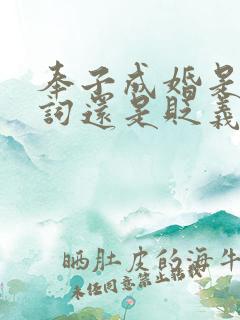 奉子成婚是
詞還是貶義
晒肚皮的海牛
未经同意禁止转载